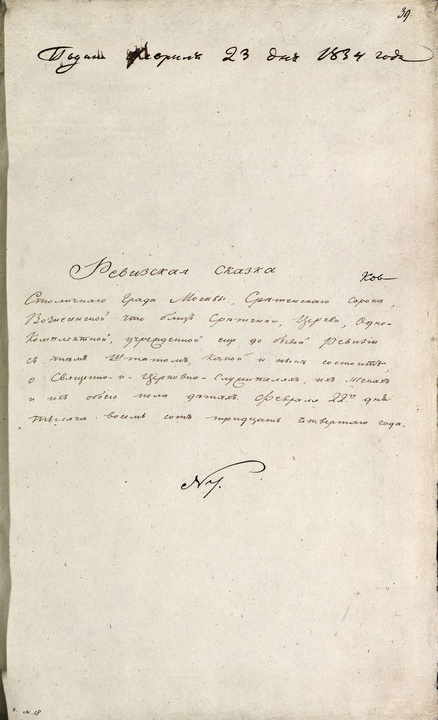 39.
Подана Февраля 23 дня 1834 года
Ревизская сказка
Ков
Столичнаго града Москвы, Срѣтенскаго сорока,
Вознесенской что близь Срѣтенки, Церкви, Одно-
комплектной, учрежденной еще до бывой Ревизіи
съ тѣмъ Штатомъ, какой и нынѣ состоитъ,
о Священно-и-Церковно-служителяхъ, ихъ женахъ
и ихъ обоего пола дѣтяхъ. Февраля 22го дня
тысяча восемь сотъ тридцать четвертаго года.